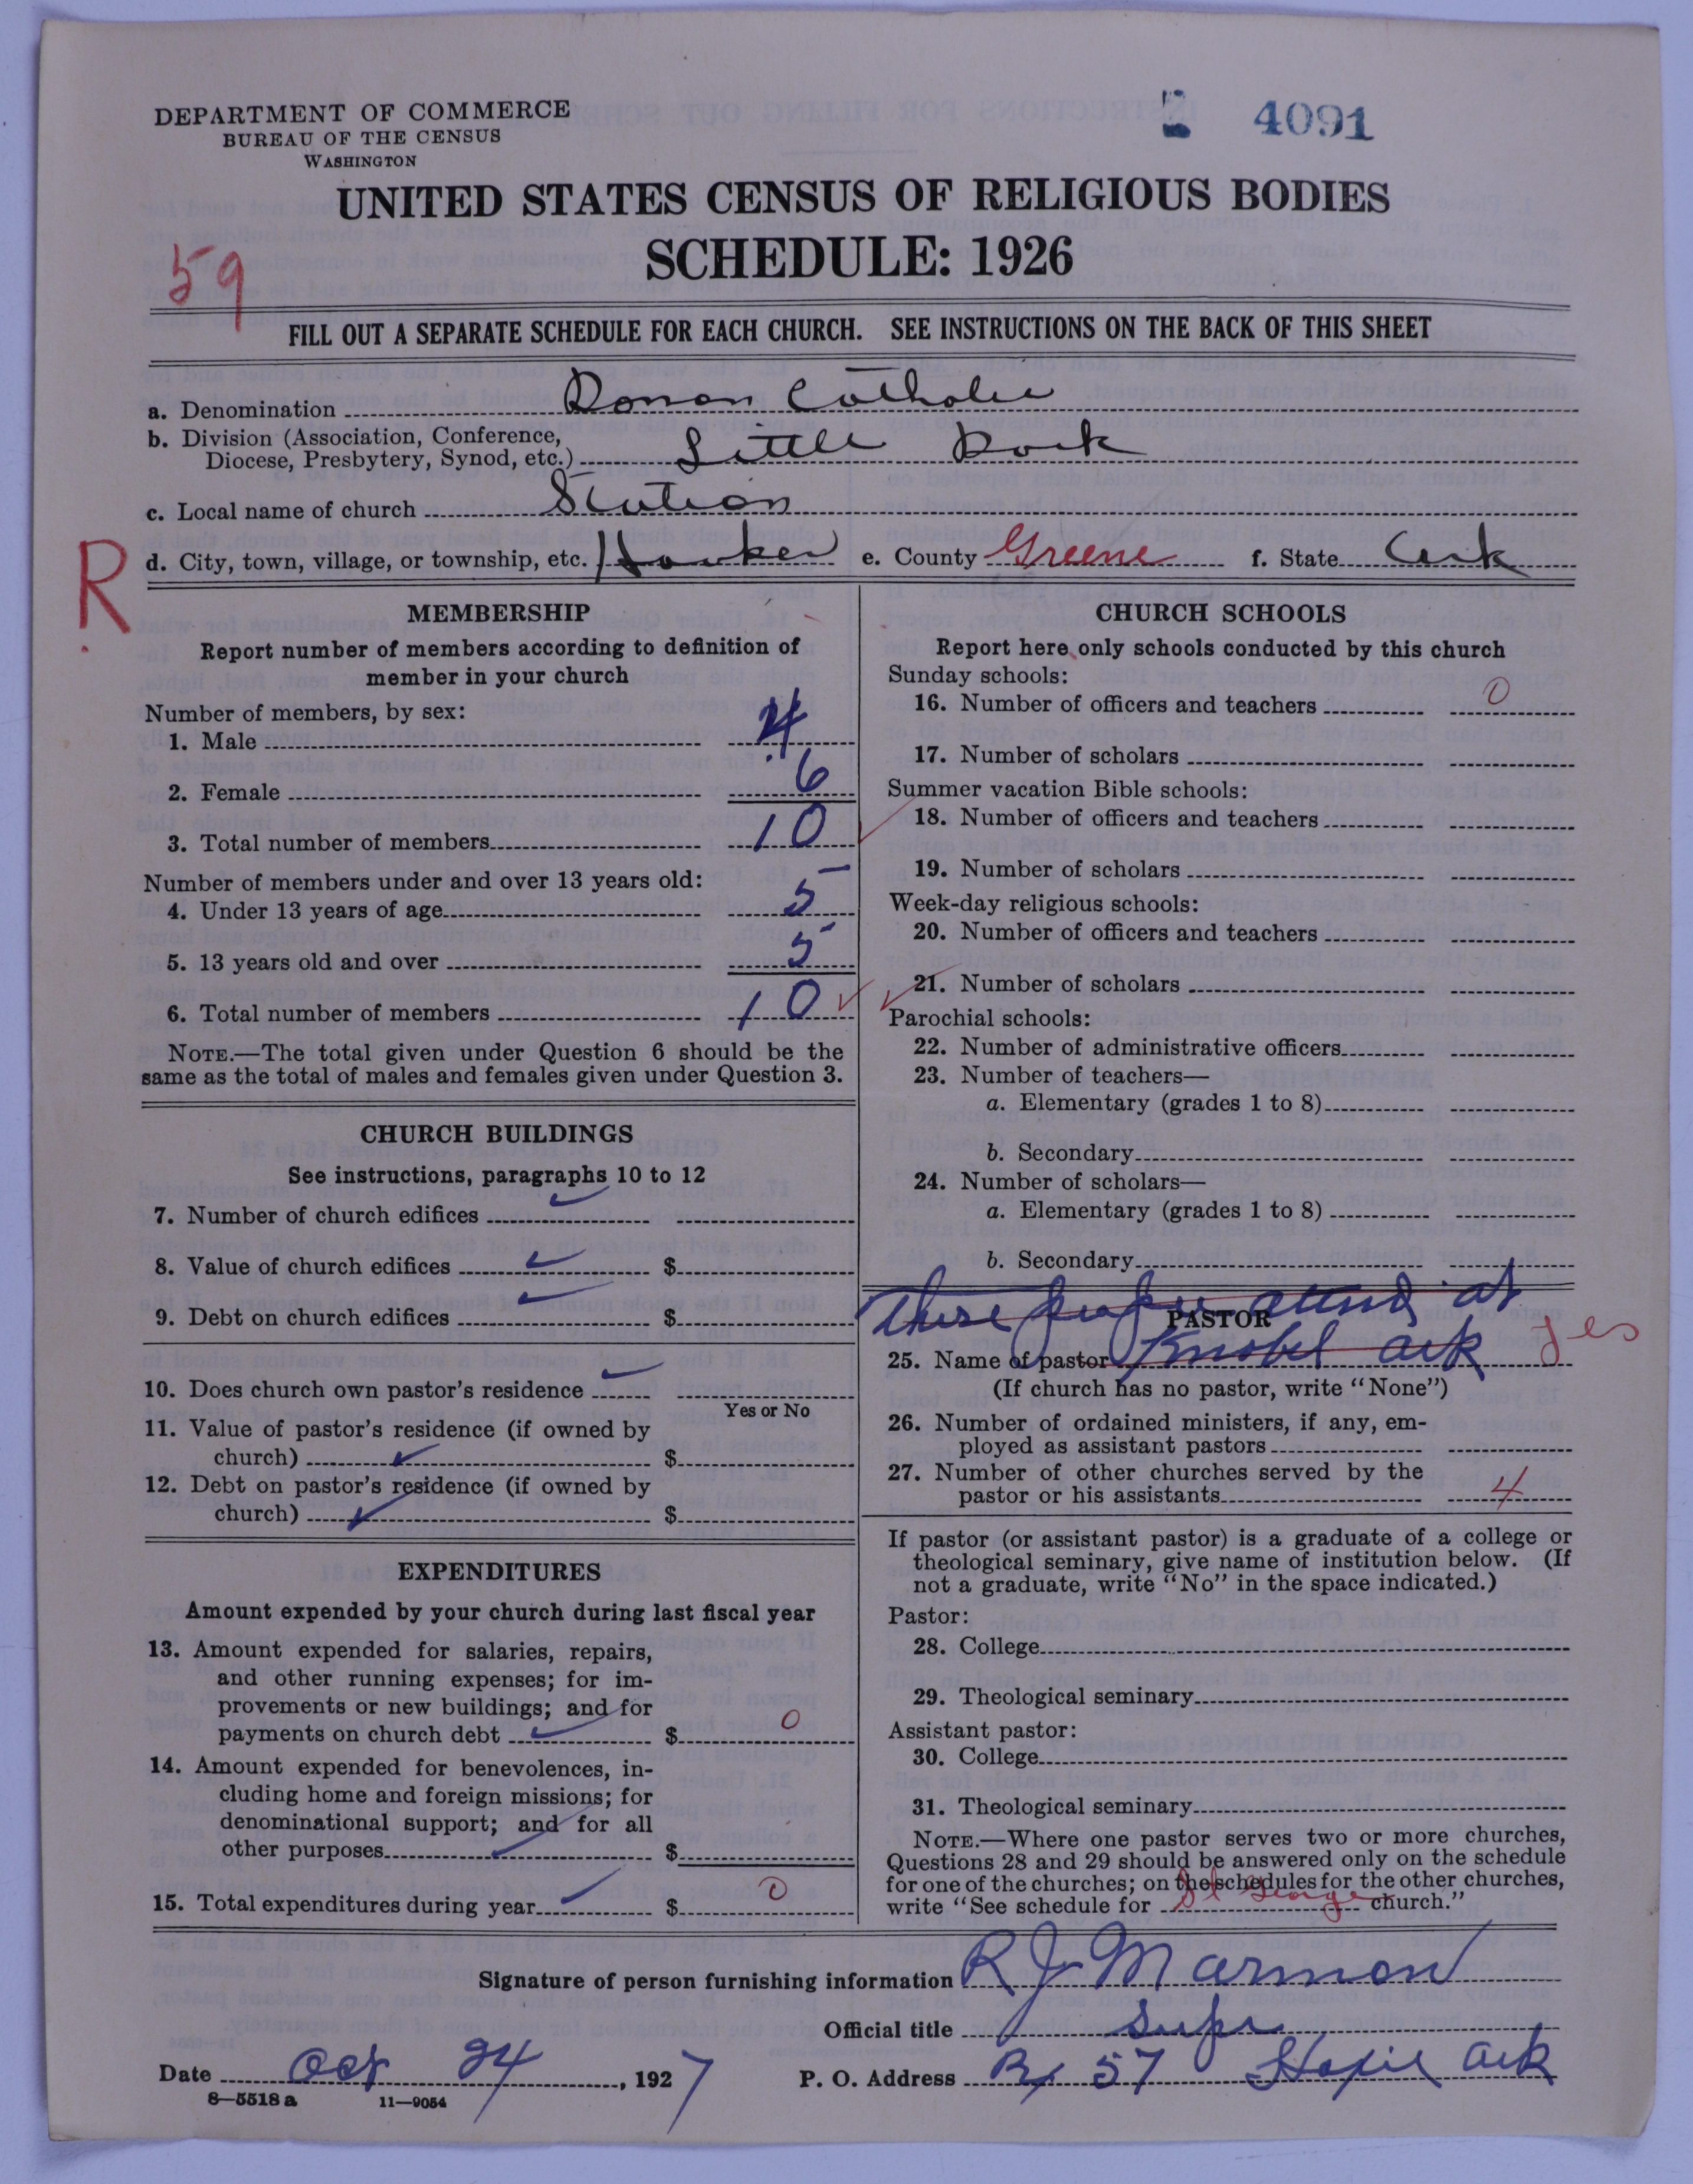 DEPARTMENT OF COMMERCE
BUREAU OF THE CENSUS
WASHINGTON
4091
UNITED STATES CENSUS OF RELIGIOUS BODIES
SCHEDULE: 1926
59
FILL OUT A SEPARATE SCHEDULE FOR EACH CHURCH. SEE INSTRUCTIONS ON THE BACK OF THIS SHEET
a. Denomination Roman Catholic
b. Division (Association, Conference,
Diocese, Presbytery, Synod, etc.) Little Rock
c. Local name of church Station
R
d. City, town, village, or township, etc. e. County Greene f. State Ark
MEMBERSHIP
Report number of members according to definition of
member in your church
Number of members, by sex:
1. Male 4
2. Female 6
3. Total number of members 10
Number of members under and over 13 years old:
4. Under 13 years of age 5
5. 13 years old and over 5
6. Total number of members 10
NOTE.—The total given under Question 6 should be the
same as the total of males and females given under Question 3.
CHURCH BUILDINGS
See instructions, paragraphs 10 to 12
7. Number of church edifices
8. Value of church edifices $
9. Debt on church edifices $
10. Does church own pastor's residence
Yes or No
11. Value of pastor's residence (if owned by
church) $
12. Debt on pastor's residence (if owned by
church) $
EXPENDITURES
Amount expended by your church during last fiscal year
13. Amount expended for salaries, repairs,
and other running expenses; for im-
provements or new buildings; and for
payments on church debt $ 0
14. Amount expended for benevolences, in-
cluding home and foreign missions; for
denominational support; and for all
other purposes $
15. Total expenditures during year $ 0
CHURCH SCHOOLS
Report here only schools conducted by this church
Sunday schools:
16. Number of officers and teachers 0
17. Number of scholars
Summer vacation Bible schools:
18. Number of officers and teachers
19. Number of scholars
Week-day religious schools:
20. Number of officers and teachers
21. Number of scholars
Parochial schools:
22. Number of administrative officers
23. Number of teachers—
a. Elementary (grades 1 to 8)
b. Secondary
24. Number of scholars—
a. Elementary (grades 1 to 8)
b. Secondary
These people attend at
PASTOR
Knobel Ark yes
25. Name of pastor
(If church has no pastor, write "None")
26. Number of ordained ministers, if any, em-
ployed as assistant pastors
27. Number of other churches served by the
pastor or his assistants 4
If pastor (or assistant pastor) is a graduate of a college or
theological seminary, give name of institution below. (If
not a graduate, write "No" in the space indicated.)
Pastor:
28. College
29. Theological seminary
Assistant pastor:
30. College
31. Theological seminary
NOTE.—Where one pastor serves two or more churches,
Questions 28 and 29 should be answered only on the schedule
for one of the churches; on the schedules for the other churches,
write "See schedule for St George church."
Signature of person furnishing information R J Marmon
Official title Supt
Date Oct 24, 1927 P. O. Address Bx 57 Hoxie Ark
8—5518 a 11—9054